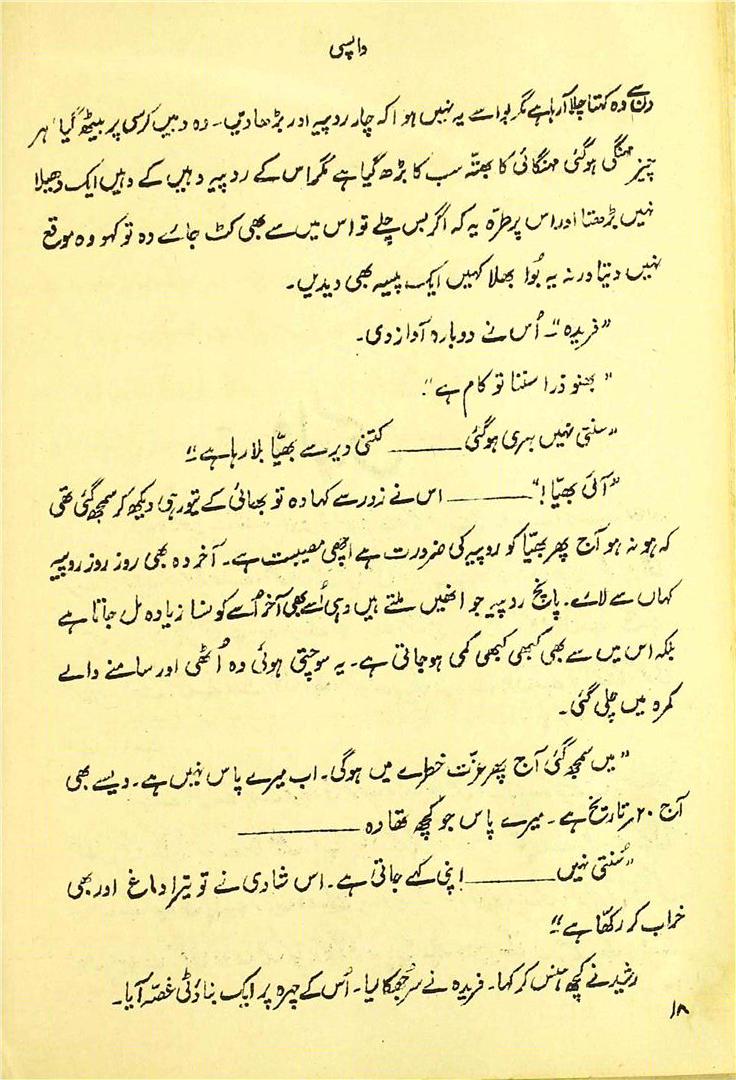 واپسی
دن سے وہ کہتا چلا آرہا ہے مگر بوا سے یہ نہیں ہوا کہ چار روپیہ اور بڑھا دیں۔ وہ وہیں کرسی پر بیٹھ گیا، ہر
چیز مہنگی ہوگئی مہنگائی کا بھتّہ سب کا بڑھ گیا ہے مگر اس کے روپیہ وہیں کے وہیں ایک دھیلا
نہیں بڑھتا اور اس پر طرّہ یہ کہ اگر بس چلے تو اس میں سے بھی کٹ جائے وہ تو کہو وہ موقع
نہیں دیتا ورنہ یہ بُوا بھلا کہیں ایک پیسہ بھی دیدیں۔
"فریدہ"۔ اُس نے دوبارہ آواز دی۔
"بھنو ذرا سننا تو کام ہے"۔
"سنتی نہیں بہری ہوگئی ــــــــ کتنی دیر سے بھیّا بلا رہا ہے"۔
"آئی بھیّا!" ــــــــ اس نے زور سے کہا وہ تو بھائی کے تیور ہی دیکھ کر سمجھ گئی تھی
کہ ہو نہ ہو آج پھر بھیّا کو روپیہ کی ضرورت ہے اچھی مصیبت ہے۔ آخر وہ بھی روز روز روپیہ
کہاں سے لائے۔ پانچ روپیہ جو انھیں ملتے ہیں وہی اُسے بھی آخر اُسے کونسا زیادہ مل جاتا ہے
بلکہ اس میں سے بھی کبھی کبھی کمی ہوجاتی ہے۔ یہ سوچتی ہوئی وہ اُٹھی اور سامنے والے
کمرہ میں چلی گئی۔
"میں سمجھ گئی آج پھر عزّت خطرے میں ہوگی۔ اب میرے پاس نہیں ہے۔ ویسے بھی
آج ۲۰ر تاریخ ہے۔ میرے پاس جو کچھ تھا وہ ــــــــ
"سُنتی نہیں ــــــــ اپنی کہے جاتی ہے۔ اس شادی نے تو تیرا دماغ اور بھی
خراب کر رکھّا ہے"۔
رشید نے کچھ ہنس کر کہا۔ فریدہ نے سر جُھکا لیا۔ اُس کے چہرہ پر ایک بناوٹی غصّہ آیا۔
۱۸